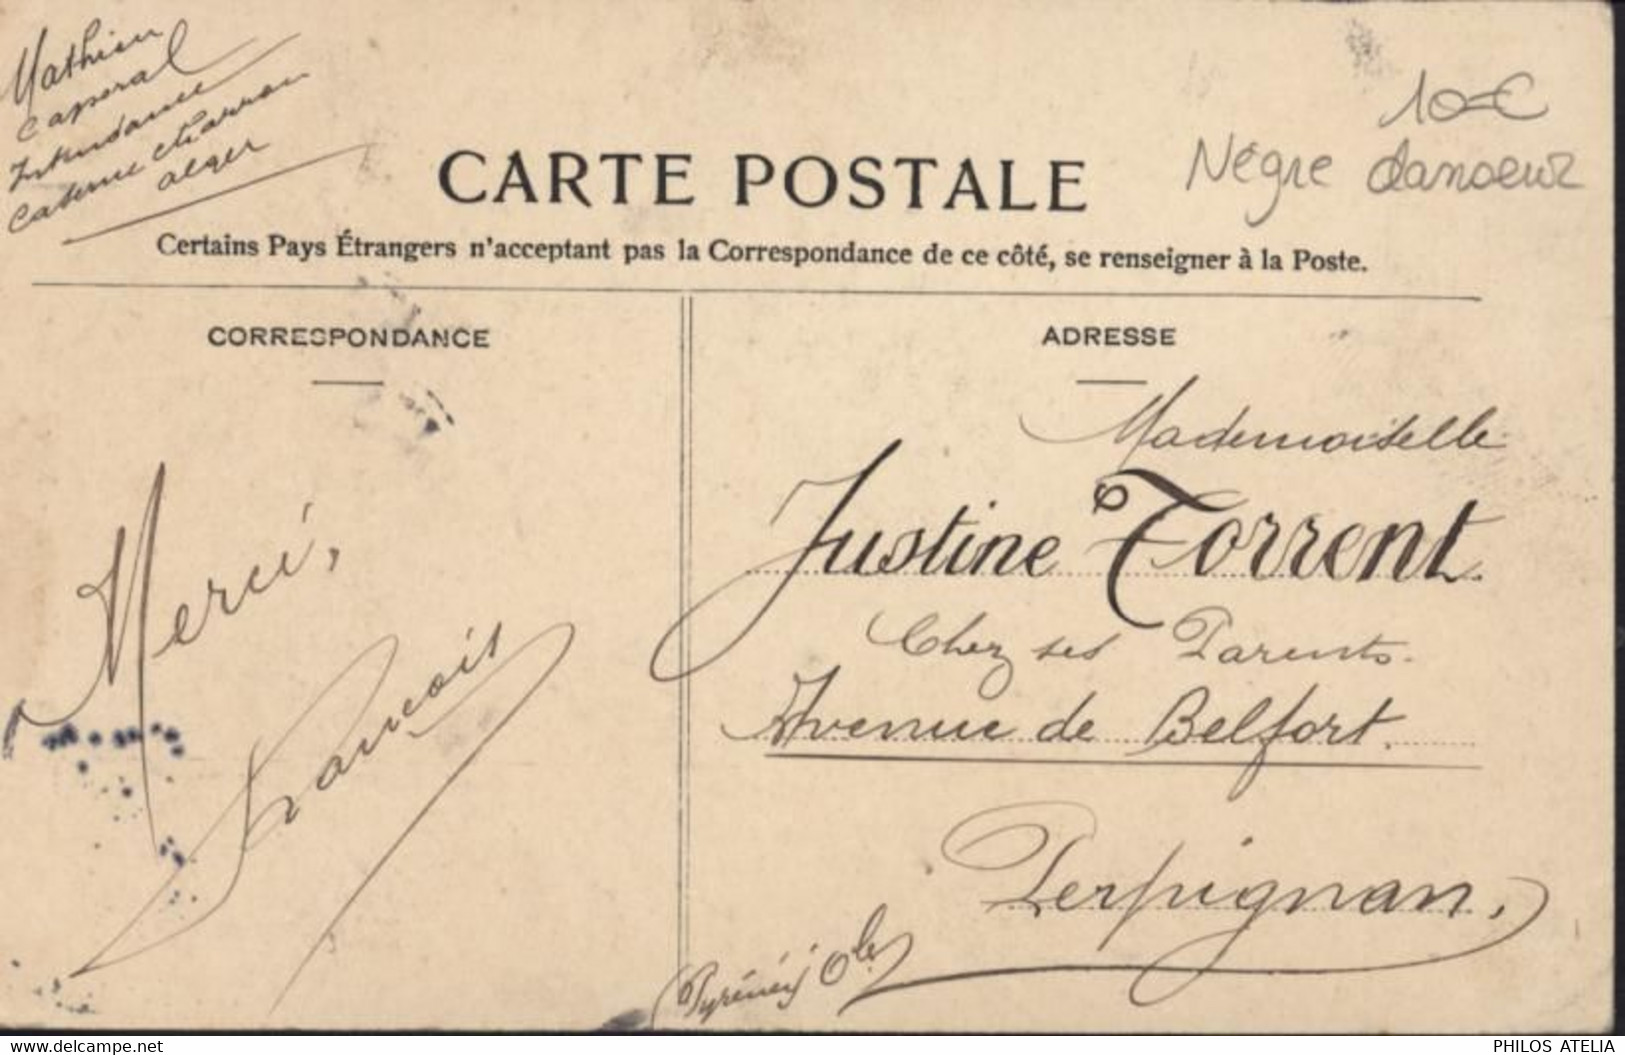 Mathieu
Caporal
Intendance
Caserne Charron
Alger
10€
Nègre danseur
CARTE POSTALE
Certains Pays Étrangers n'acceptant pas la Correspondance de ce côté, se renseigner à la Poste.
CORRESPONDANCE
Merci,
François
ADRESSE
Mademoiselle
Justine Torrent
Chez ses Parents
Avenue de Belfort
Perpignan,
Pyrénées Oles
www.delcampe.net
PHILOS ATELIA